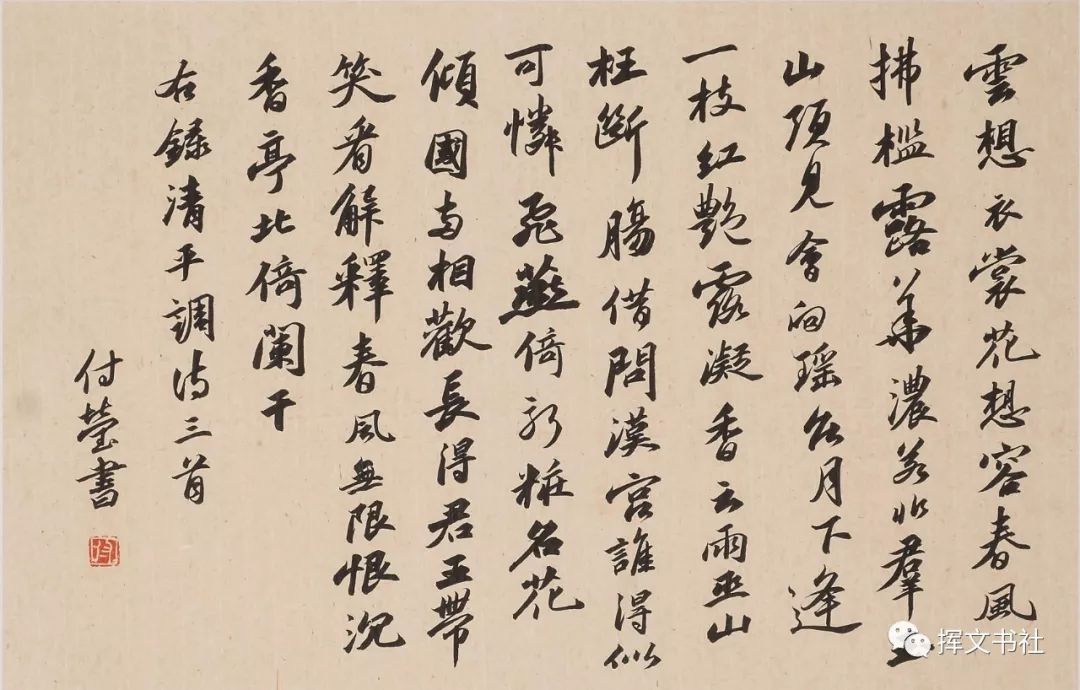 雲想衣裳花想容春風
拂檻露華濃若非群玉
山頭見會向瑤台月下逢
一枝红艷露凝香云雨巫山
枉斷腸借問漢宮誰得似
可憐飛燕倚新粧名花
傾國両相歡長得君王帶
笑看解釋春風無限恨沉
香亭北倚闌干
右録清平調诗三首
付瑩書
挥文书社